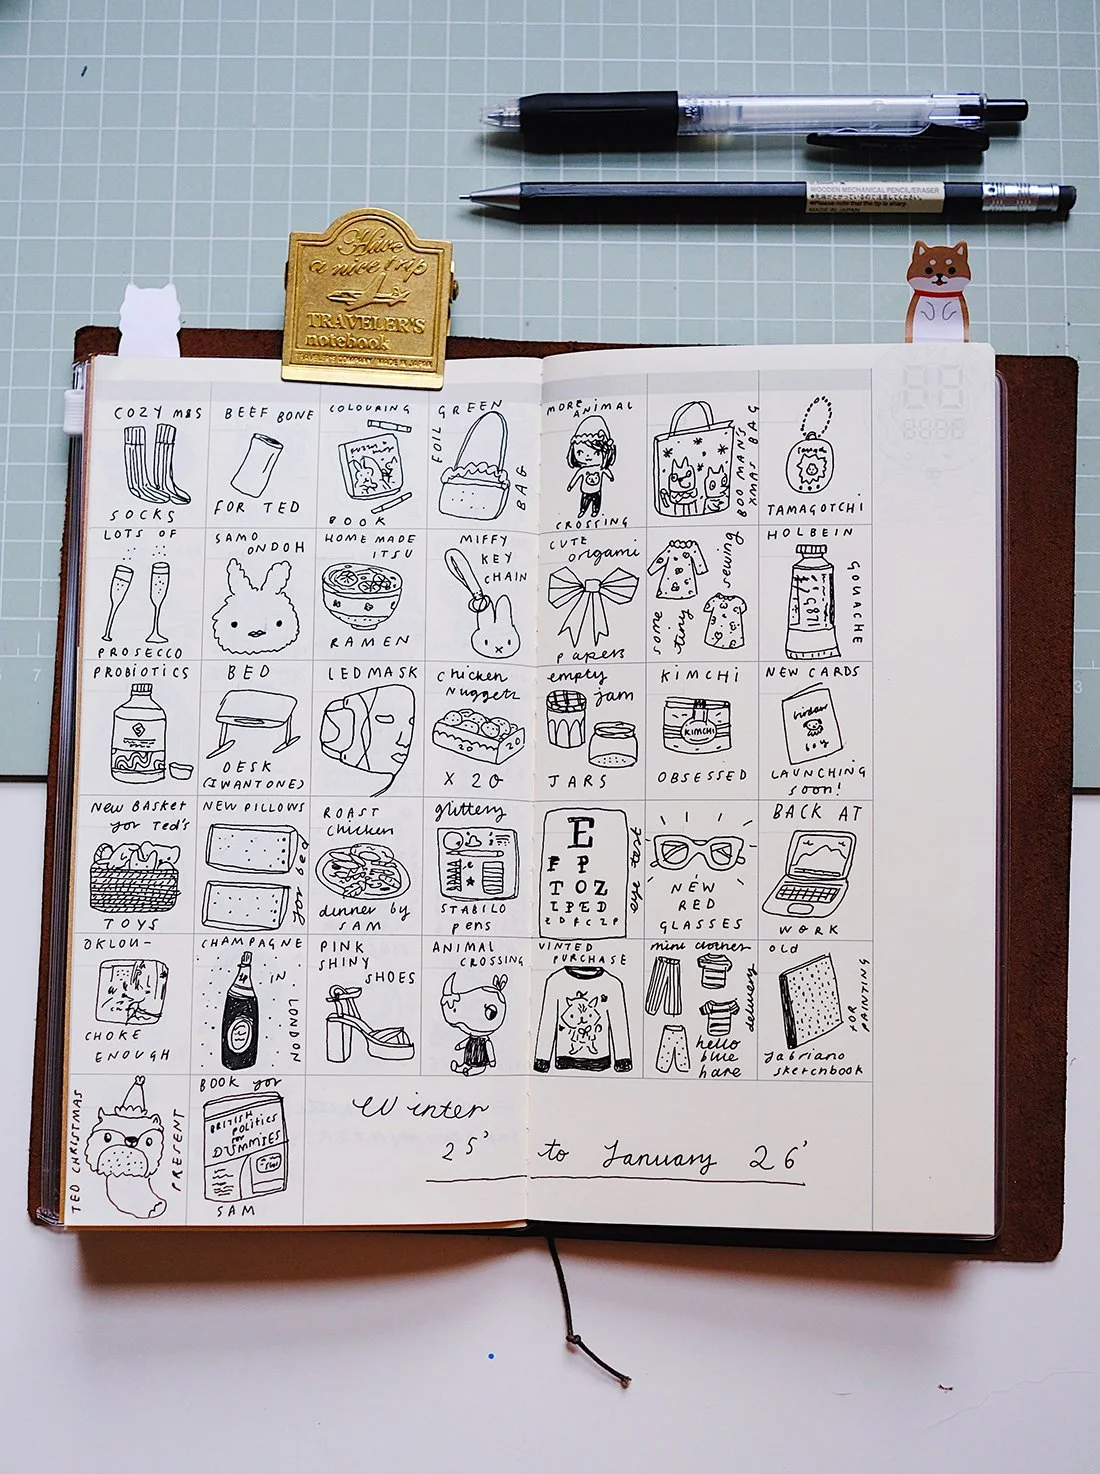 WOODEN MECHANICAL PENCIL/ERASER
MADE IN JAPAN
Have
a nice trip
TRAVELER'S
notebook
TRAVELER'S COMPANY MADE IN JAPAN
COZY M&S
SOCKS
BEEF BONE
FOR TED
COLOURING
BOOK
GREEN
FOIL
BAG
MORE ANIMAL
CROSSING
BOO MAN'S
XMAS BAG
TAMAGOTCHI
LOTS OF
PROSECCO
SAMO
ONDOH
HOME MADE
ITSU
RAMEN
MIFFY
KEY
CHAIN
CUTE
origami
papers
some
tiny
sewing
HOLBEIN
GOUACHE
PROBIOTICS
BED
DESK
(I WANT ONE)
LED MASK
chicken
Nuggets
20
20
X 20
empty
jam
JARS
KIMCHI
KIMCHI
OBSESSED
NEW CARDS
LAUNCHING
soon!
NEW BASKET
for Ted's
TOYS
NEW PILLOWS
for bed
ROAST
chicken
dinner by
SAM
glittery
STABILO
pens
E
F P
T O Z
L P E D
eye test
NEW
RED
GLASSES
BACK AT
WORK
OKLOU-
CHOKE
ENOUGH
CHAMPAGNE
IN
LONDON
PINK
SHINY
SHOES
ANIMAL
CROSSING
VINTED
PURCHASE
mini clothes
delivery
hello
blue
hare
OLD
FOR PAINTING
fabriano
sketchbook
TED CHRISTMAS
PRESENT
BOOK for
BRITISH
POLITICS
FOR
DUMMIES
SAM
Winter
25'
to January 26'